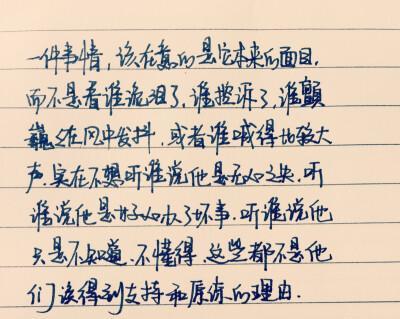 一件事情，该在意的是它本来的面目，
而不是看谁流泪了，谁控诉了，谁颤
巍々在风中发抖，或者谁喊得比较大
声。实在不想听谁说他是无心之失，听
谁说他是好心办了坏事，听谁说他
只是不知道、不懂得，这些都不是他
们该得到支持和原谅的理由．